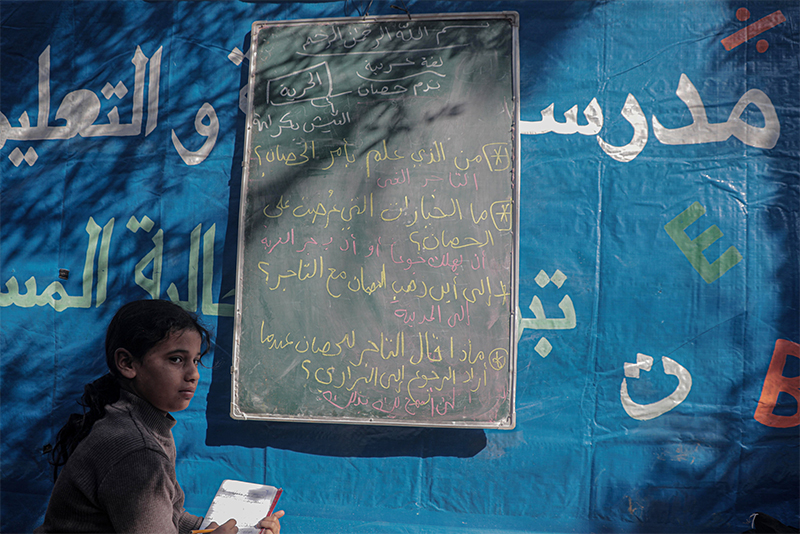 بسم الله الرحمن الرحيم
لغة عربية
ندم حصان
الحرية
العيش بكرامة
* من الذي علم بأمر الحصان؟
التاجر الغني
* ما الخياران اللذان عُرضت على
الحصان؟
أن يهلك جوعاً أو أن يجر العربة
* إلى أين ذهب الحصان مع التاجر؟
إلى المدينة
* ماذا قال التاجر للحصان عندما
أراد الرجوع إلى البراري؟
مدرسة
و التعليم
المس
ت
E
B